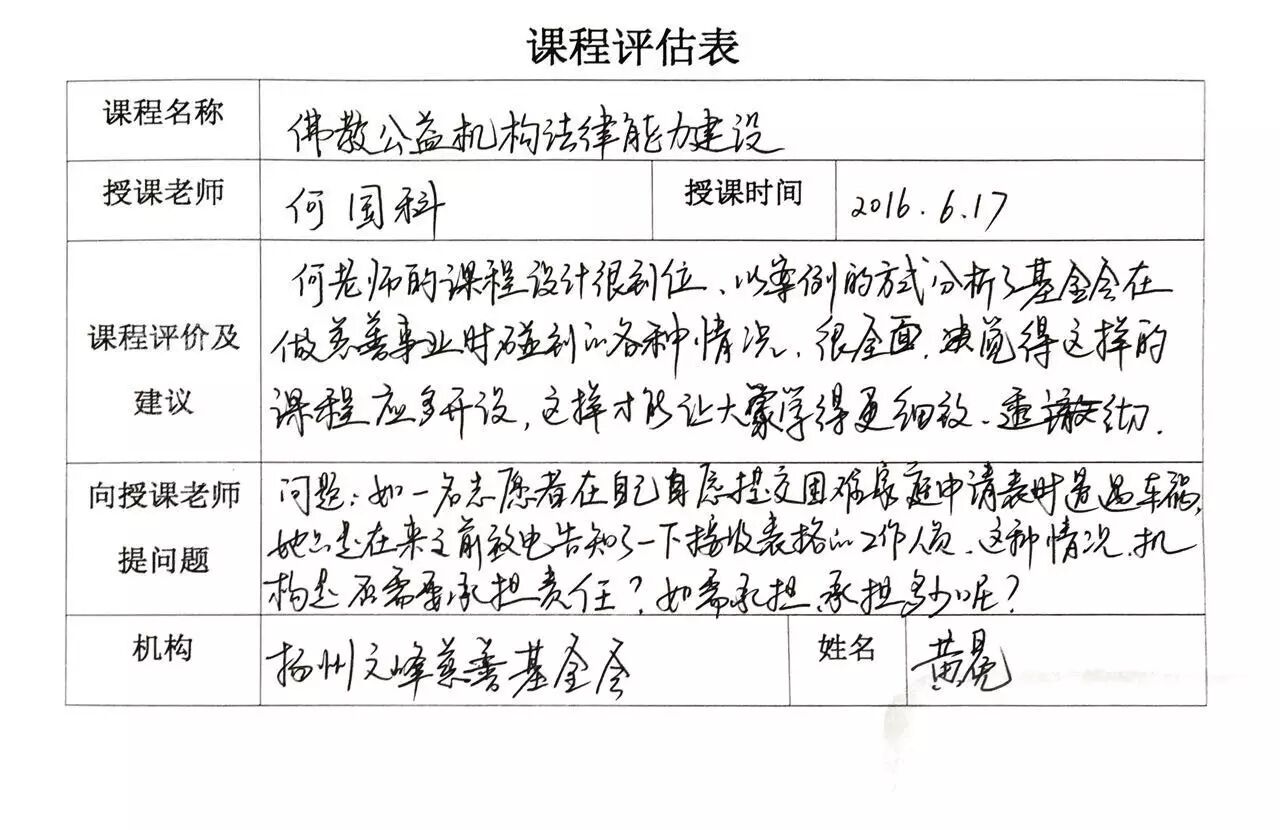 课程评估表
课程名称
佛教公益机构法律能力建设
授课老师
何国科
授课时间
2016.6.17
课程评价及
建议
何老师的课程设计很到位、以案例的方式分析了基金会在
做慈善事业时碰到的各种情况、很全面、觉得这样的
课程应多开设,这样才能让大家学得更细致、透彻.
向授课老师
提问题
问题:如一名志愿者在自己自愿提交困难家庭申请表时遭遇车祸,
她只是在来之前致电告知了一下接收表格的工作人员、这种情况、机
构是否需要承担责任?如需承担、承担多少呢?
机构
扬州文峰慈善基金会
姓名
黄